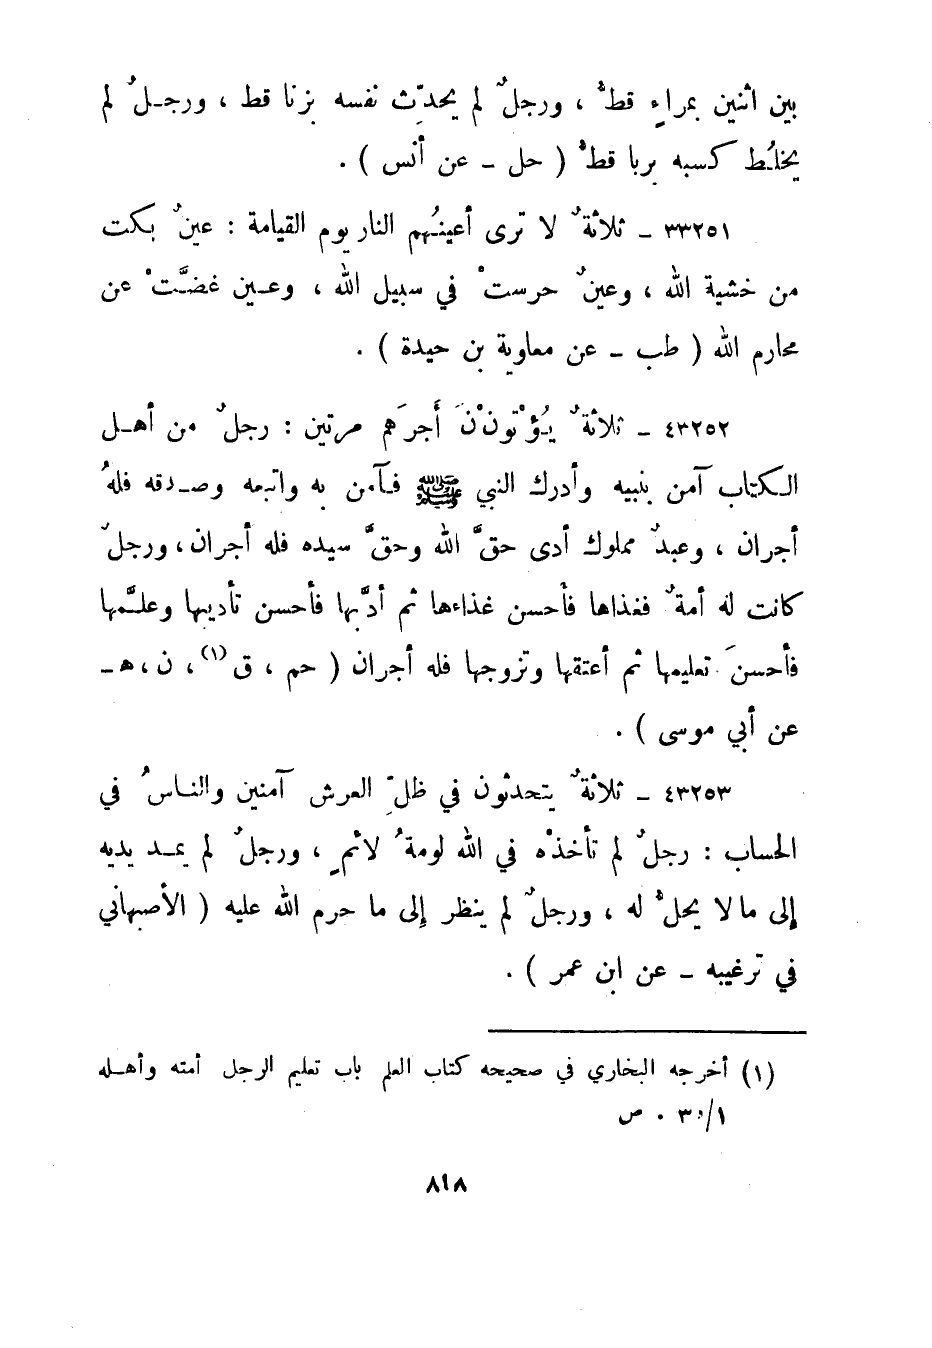 بين اثنين بمراءٍ قطُّ ، ورجلٌ لم يحدِّث نفسه بزنا قط ، ورجلٌ لم
يخلُط كسبه بربا قطُّ ( حل ـ عن أنس ) .
٣٣٢٥١ ـ ثلاثةٌ لا ترى أعينُهم النار يوم القيامة : عينٌ بكت
من خشية الله ، وعينٌ حرستْ في سبيل الله ، وعين غضَّتْ عن
محارم الله ( طب ـ عن معاوية بن حيدة ) .
٤٣٢٥٢ ـ ثلاثةٌ يُؤْتونْنَ أَجرَهم مرتين : رجلٌ من أهل
الكتاب آمن بنبيه وأدرك النبي ﷺ فآمن به واتبعه وصدقه فلهُ
أجران ، وعبدٌ مملوك أدى حقَّ الله وحقَّ سيده فله أجران ، ورجلٌ
كانت له أمةٌ فغذاها فأحسن غذاءها ثم أدَّبها فأحسن تأديبها وعلَّمها
فأحسنَ تعليمها ثم أعتقها وتزوجها فله أجران ( حم ، ق (١) ، ن ، هـ ـ
عن أبي موسى ) .
٤٣٢٥٣ ـ ثلاثةٌ يتحدثون في ظلِّ العرش آمنين والناسُ في
الحساب : رجلٌ لم تأخذْه في الله لومةُ لائمٍ ، ورجلٌ لم يمد يديه
إلى ما لا يحلُّ له ، ورجلٌ لم ينظر إلى ما حرم الله عليه ( الأصبهاني
في ترغيبه ـ عن ابن عمر ) .
(١) أخرجه البخاري في صحيحه كتاب العلم باب تعليم الرجل أمته وأهله
٣٠/١ . ص
٨١٨